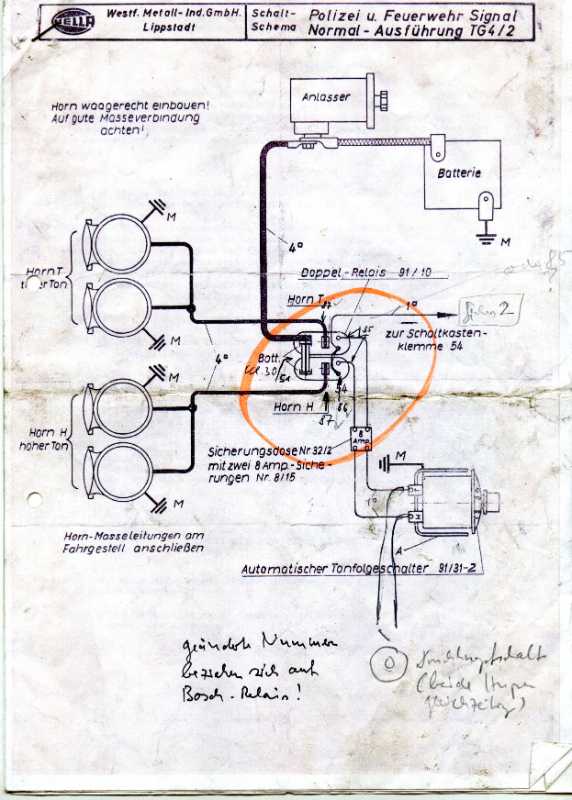 HELLA
Westf. Metall-Ind. GmbH.
Lippstadt
Schalt-
Schema
Polizei u. Feuerwehr Signal
Normal-Ausführung TG4/2
Horn waagerecht einbauen!
Auf gute Masseverbindung
achten!
Anlasser
Batterie
M
M
4°
Horn T
tiefer Ton
Doppel-Relais 91/10
Horn T
87
1°
zur Schaltkasten-
klemme 54
4°
Batt.
30
51
85
54
86
Horn H
87
M
M
Horn H
hoher Ton
8
Amp.
Sicherungsdose Nr. 92/2
mit zwei 8 Amp.-Siche-
rungen Nr. 8/15
M
M
1°
A
Horn-Masseleitungen am
Fahrgestell anschließen
Automatischer Tonfolgeschalter 91/31-2
geänderte Nummern
beziehen sich auf
Bosch-Relais!
(beide Hupen
gleichzeitig)